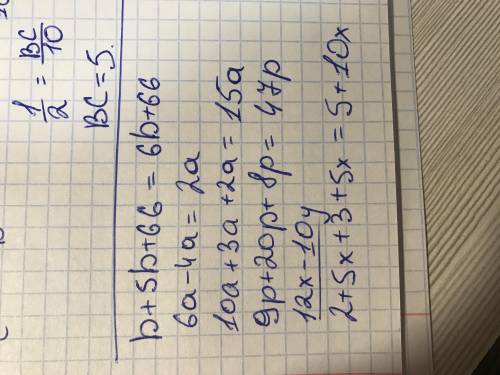 1/2 = BC/10
BC = 5.
b+5b+66 = 6b+66
6a-4a = 2a
10a+3a+2a = 15a
9p+20p+8p = 47p
12x-10y
2+5x+3+5x = 5+10x